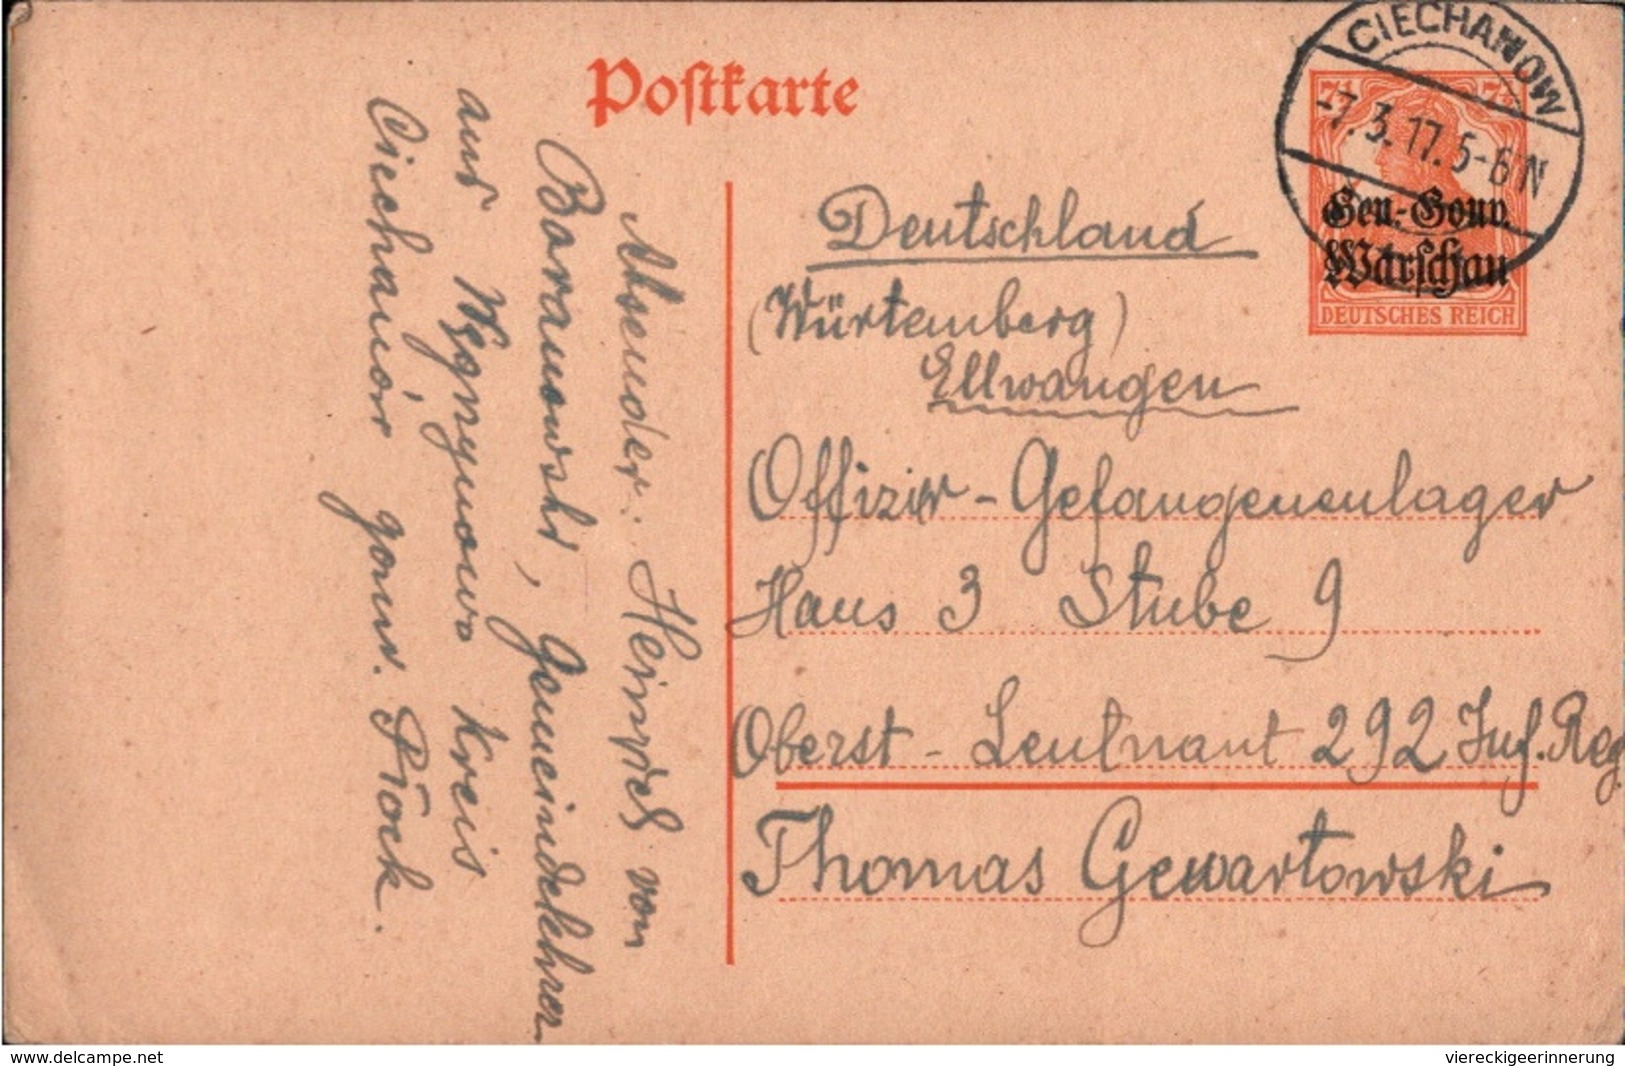 Postkarte
CIECHANOW
-7.3.17.5-6N
7½ 7½
Gen.-Gouv.
Warschau
DEUTSCHES REICH
Deutschland
(Würtemberg)
Ellwangen
Offizier-Gefangenenlager
Haus 3 Stube 9
Oberst-Leutnant 292 Inf. Reg.
Thomas Gewartowski
Absender: Heinrich von
Baranowski, Gemeindelehrer
aus Kreis
Ciechanów gouv. Płock.
www.delcampe.net
viereckigeerinnerung